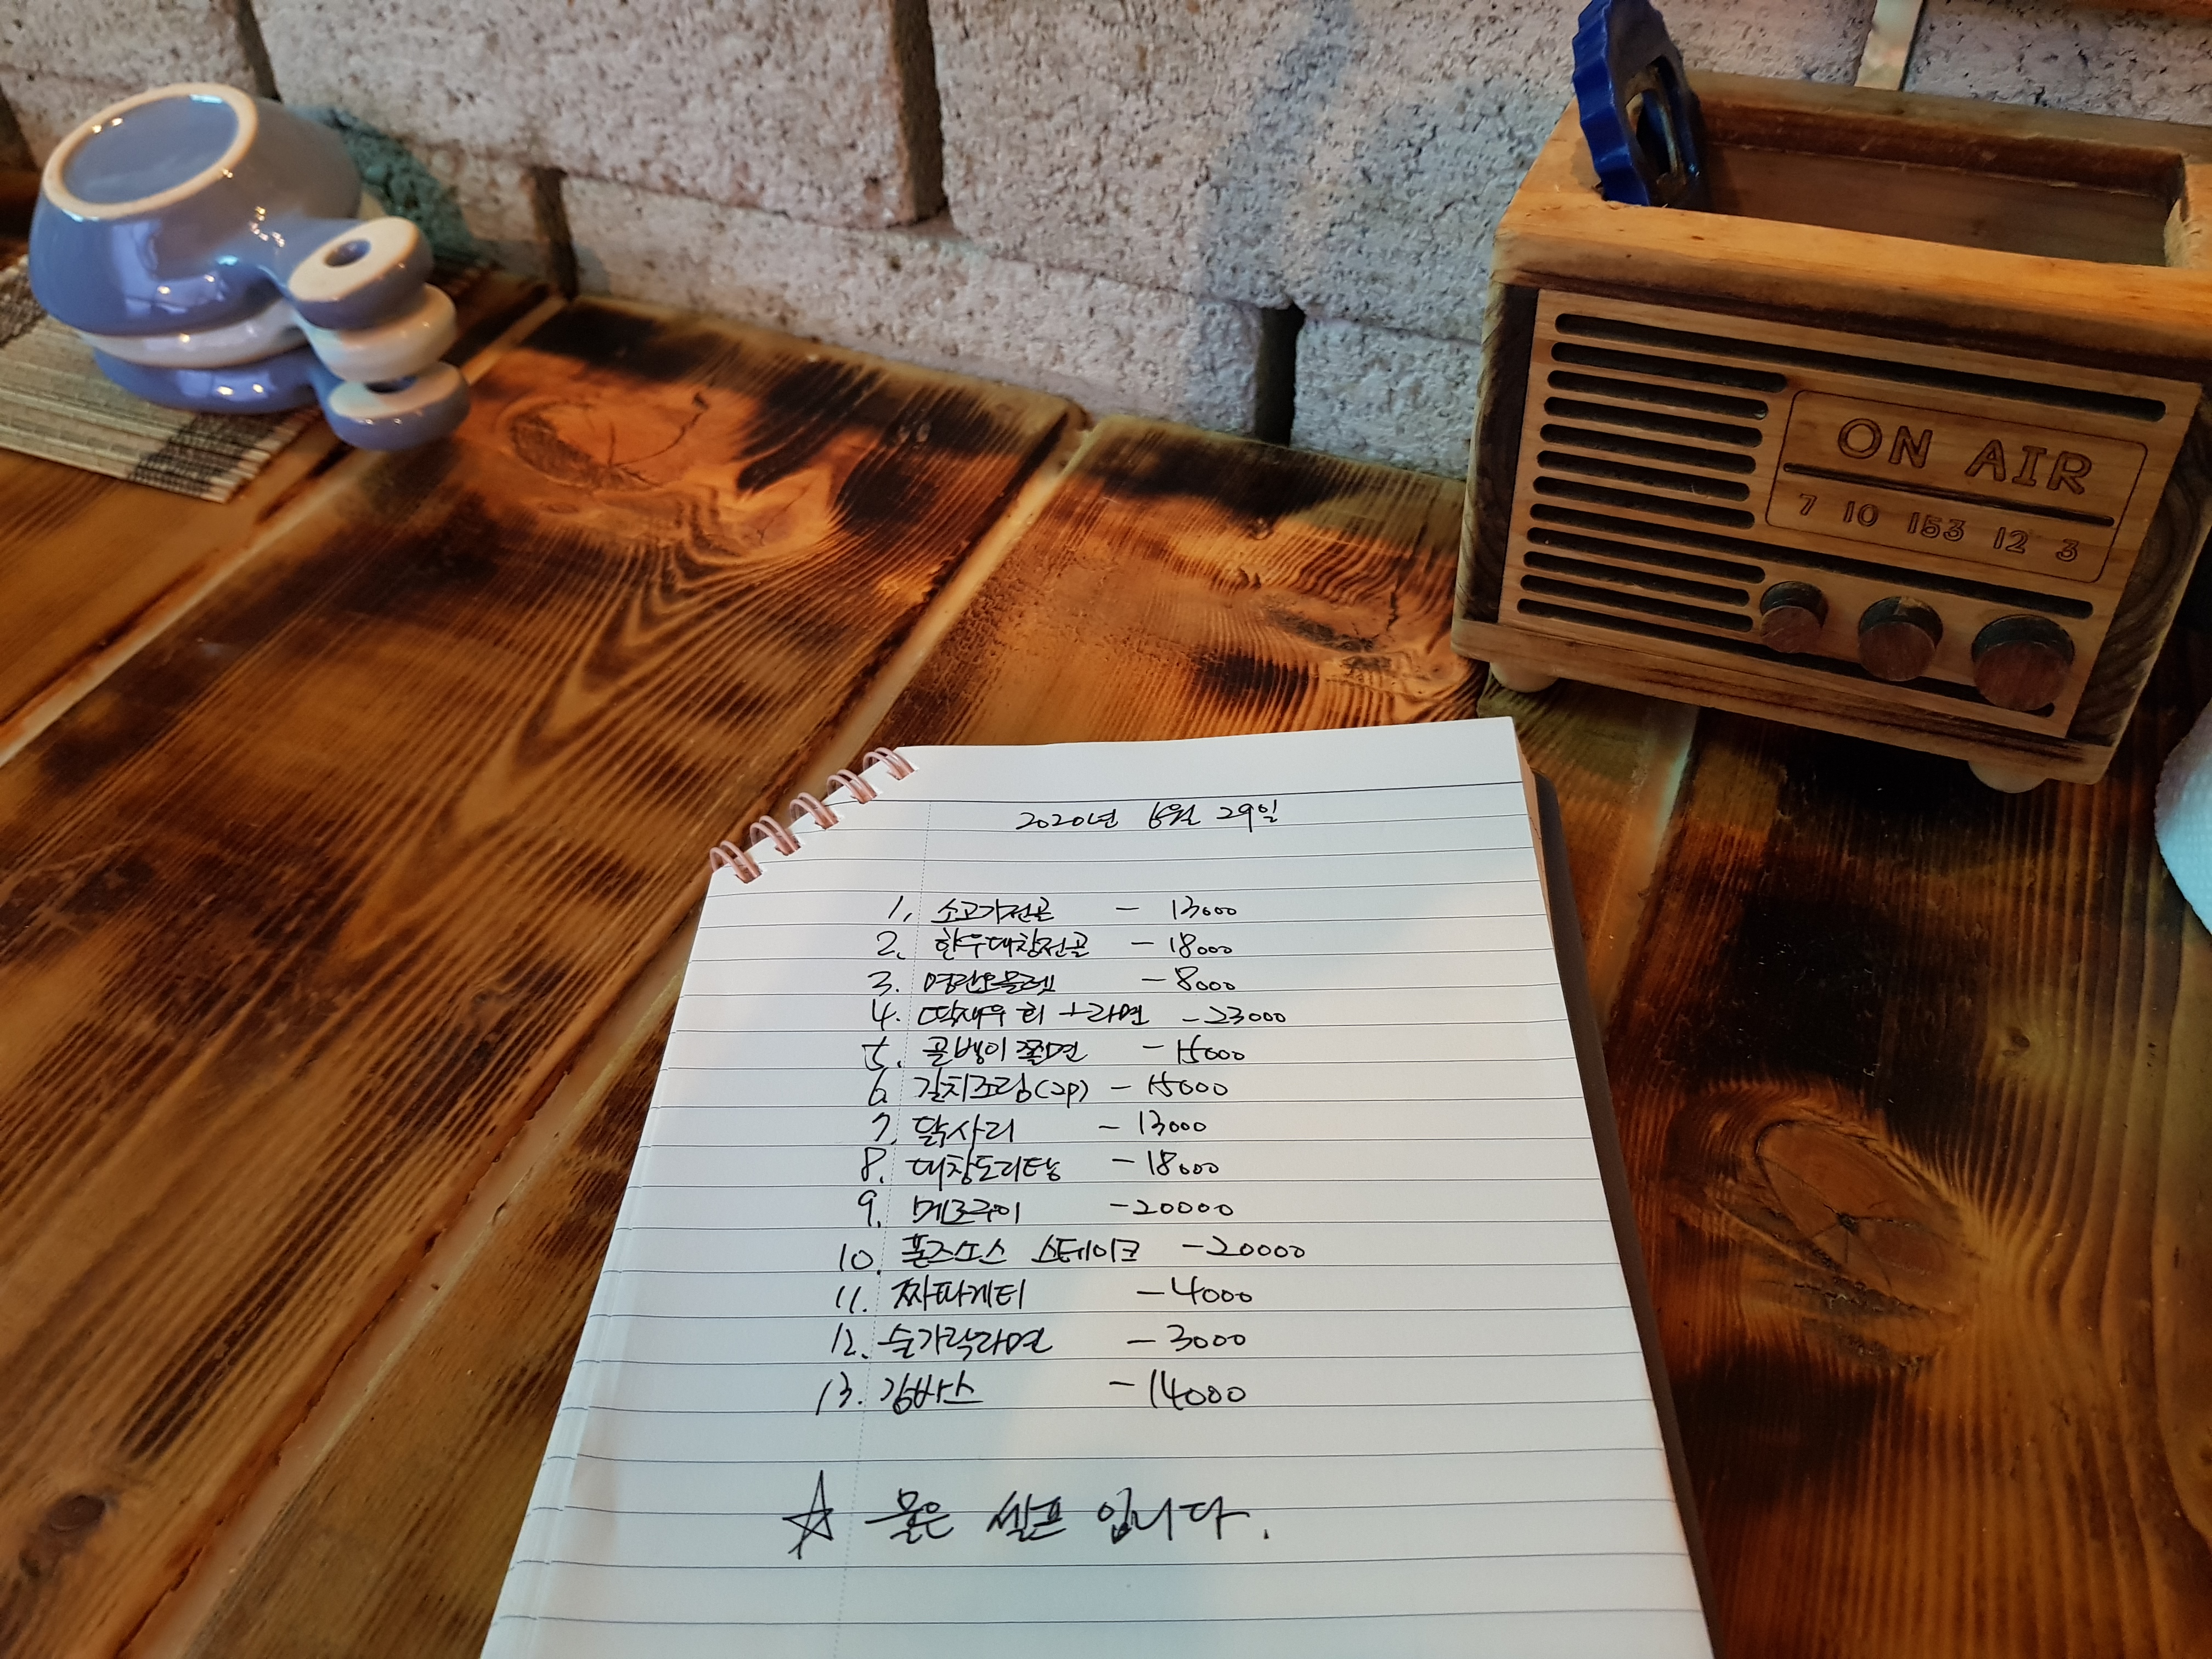 ON AIR
7 10 153 12 3
2020년 6월 29일
1. 소고기전골 - 13000
2. 한우대창전골 - 18000
3. 명란오믈렛 - 8000
4. 딱새우 회 + 라면 - 23000
5. 골뱅이 쫄면 - 15000
6. 갈치조림(2p) - 15000
7. 닭사리 - 13000
8. 대창도리탕 - 18000
9. 메로구이 - 20000
10. 폰즈소스 스테이크 - 20000
11. 짜파게티 - 4000
12. 숟가락라면 - 3000
13. 감바스 - 14000
☆ 물은 셀프 입니다.